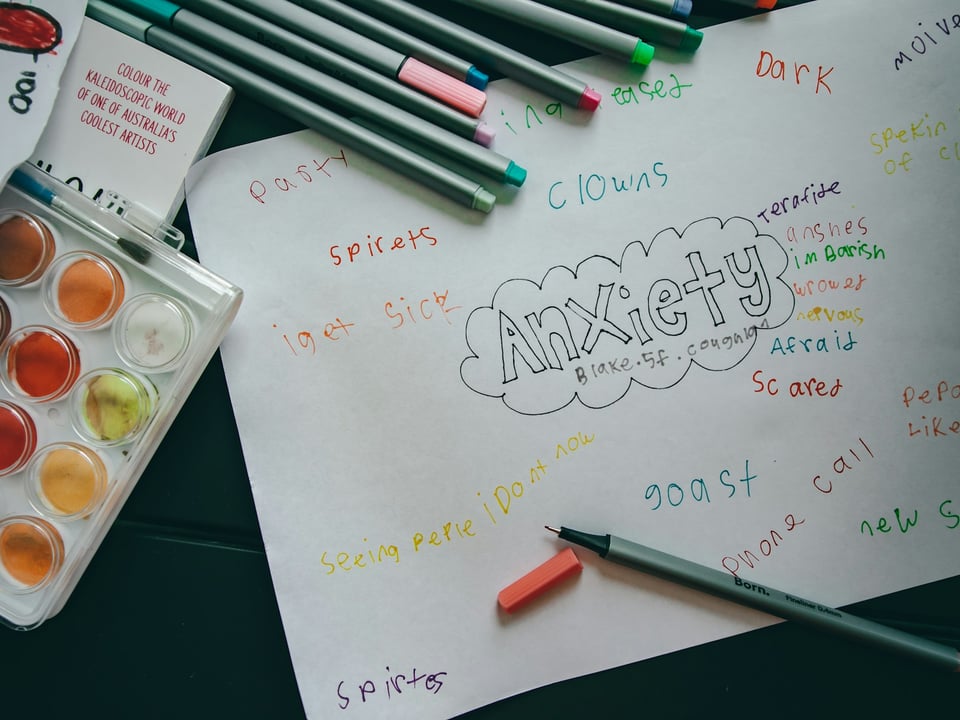 COLOUR THE
KALEIDOSCOPIC WORLD
OF ONE OF AUSTRALIA'S
COOLEST ARTISTS
DARK
moive
ing eased
spekin
of cl
party
clowns
spirets
Terafide
anshes
imBarish
wrowed
nervous
Afraid
Scared
iget sick
Anxiety
Blake.5f.coughlan
pepo
Like
seeing peple iDont now
goast
phone call
new s
Born. Fineliner 0.4mm
spirtes